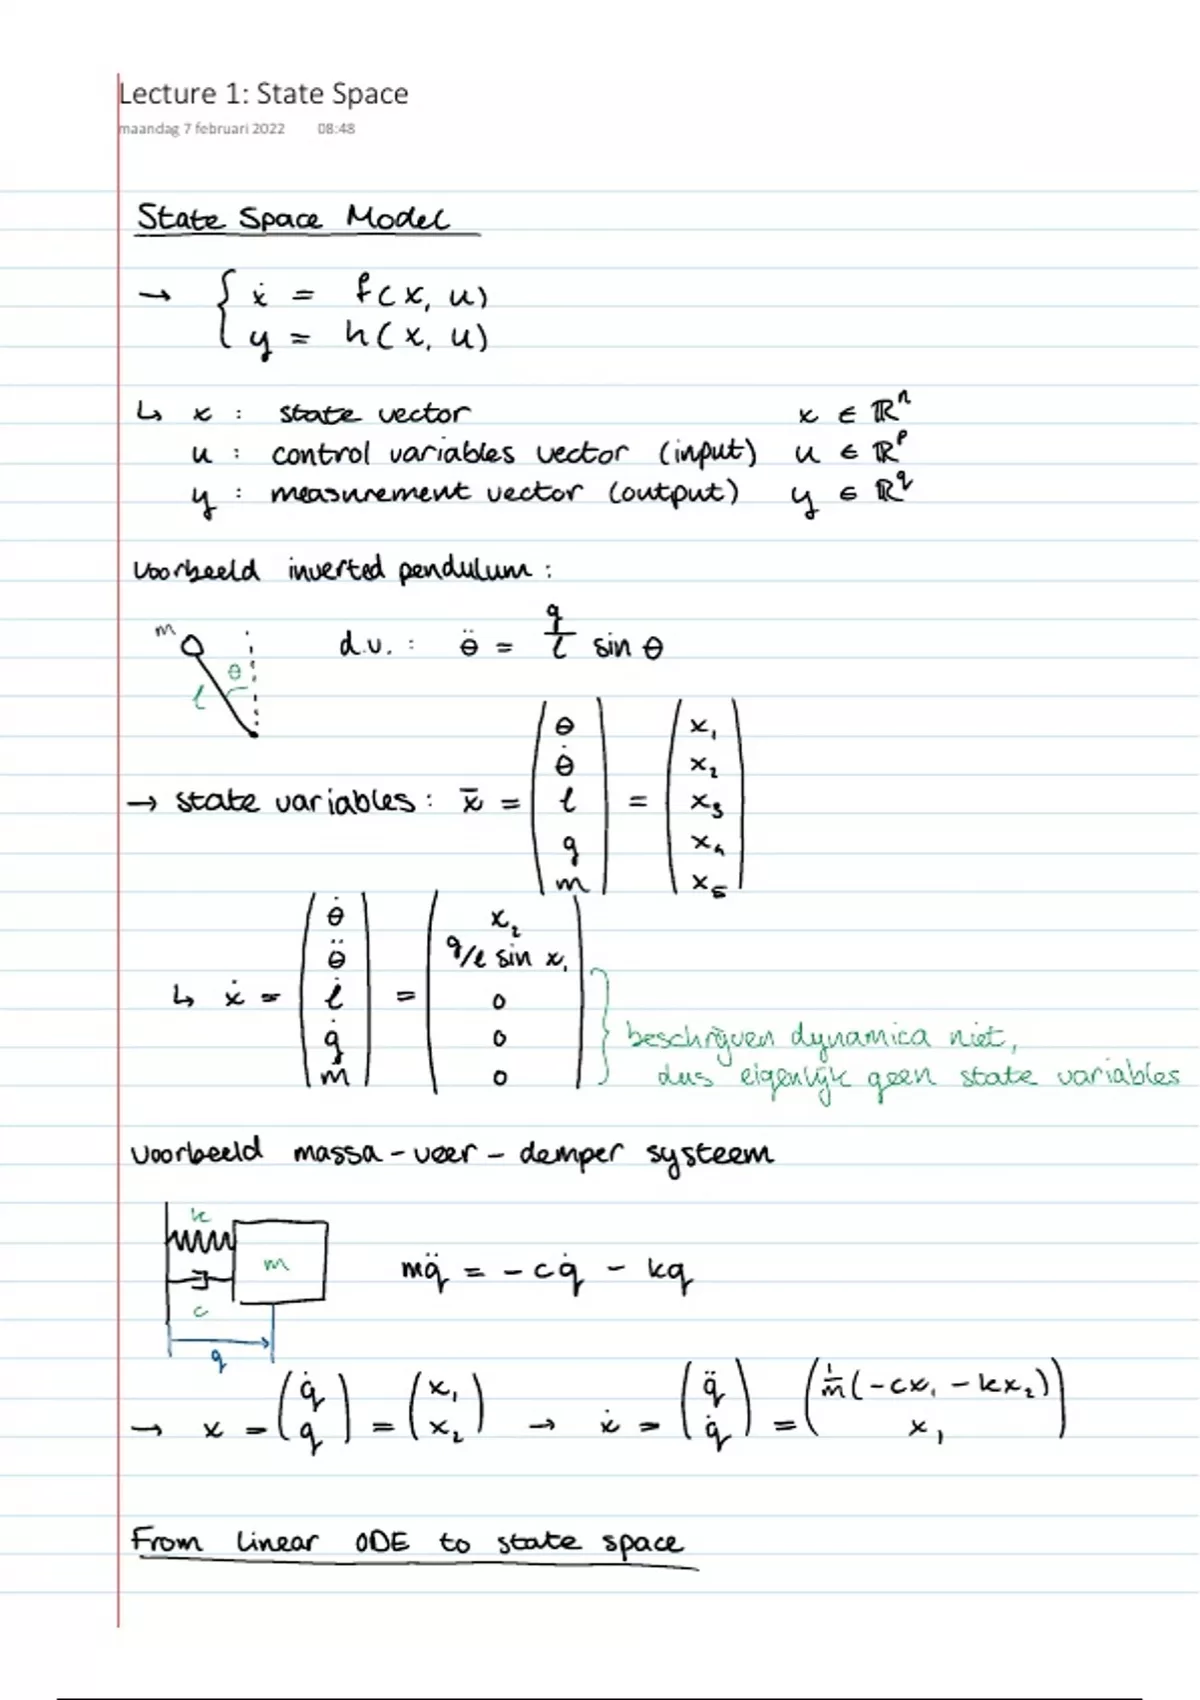 Lecture 1: State Space
maandag 7 februari 2022 08:48
State Space Model
→ { ẋ = f(x, u)
y = h(x, u)
↳ x : state vector x ∈ ℝⁿ
u : control variables vector (input) u ∈ ℝᵖ
y : measurement vector (output) y ∈ ℝ^q
Voorbeeld inverted pendulum :
m
θ
l
d.v. : θ̈ = g/l sin θ
→ state variables : x̄ = (θ, θ̇, l, g, m) = (x₁, x₂, x₃, x₄, x₅)
↳ ẋ = (θ̇, θ̈, l̇, ġ, ṁ) = (x₂, g/l sin x₁, 0, 0, 0)
beschrijven dynamica niet,
dus eigenlijk geen state variables
Voorbeeld massa - veer - demper systeem
k
m
c
q
mq̈ = - cq̇ - kq
→ x = (q̇, q) = (x₁, x₂) → ẋ = (q̈, q̇) = (1/m (-cx₁ - kx₂), x₁)
From linear ODE to state space